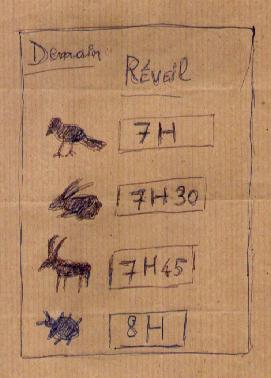 Demain
Réveil
7H
7H30
7H45
8H